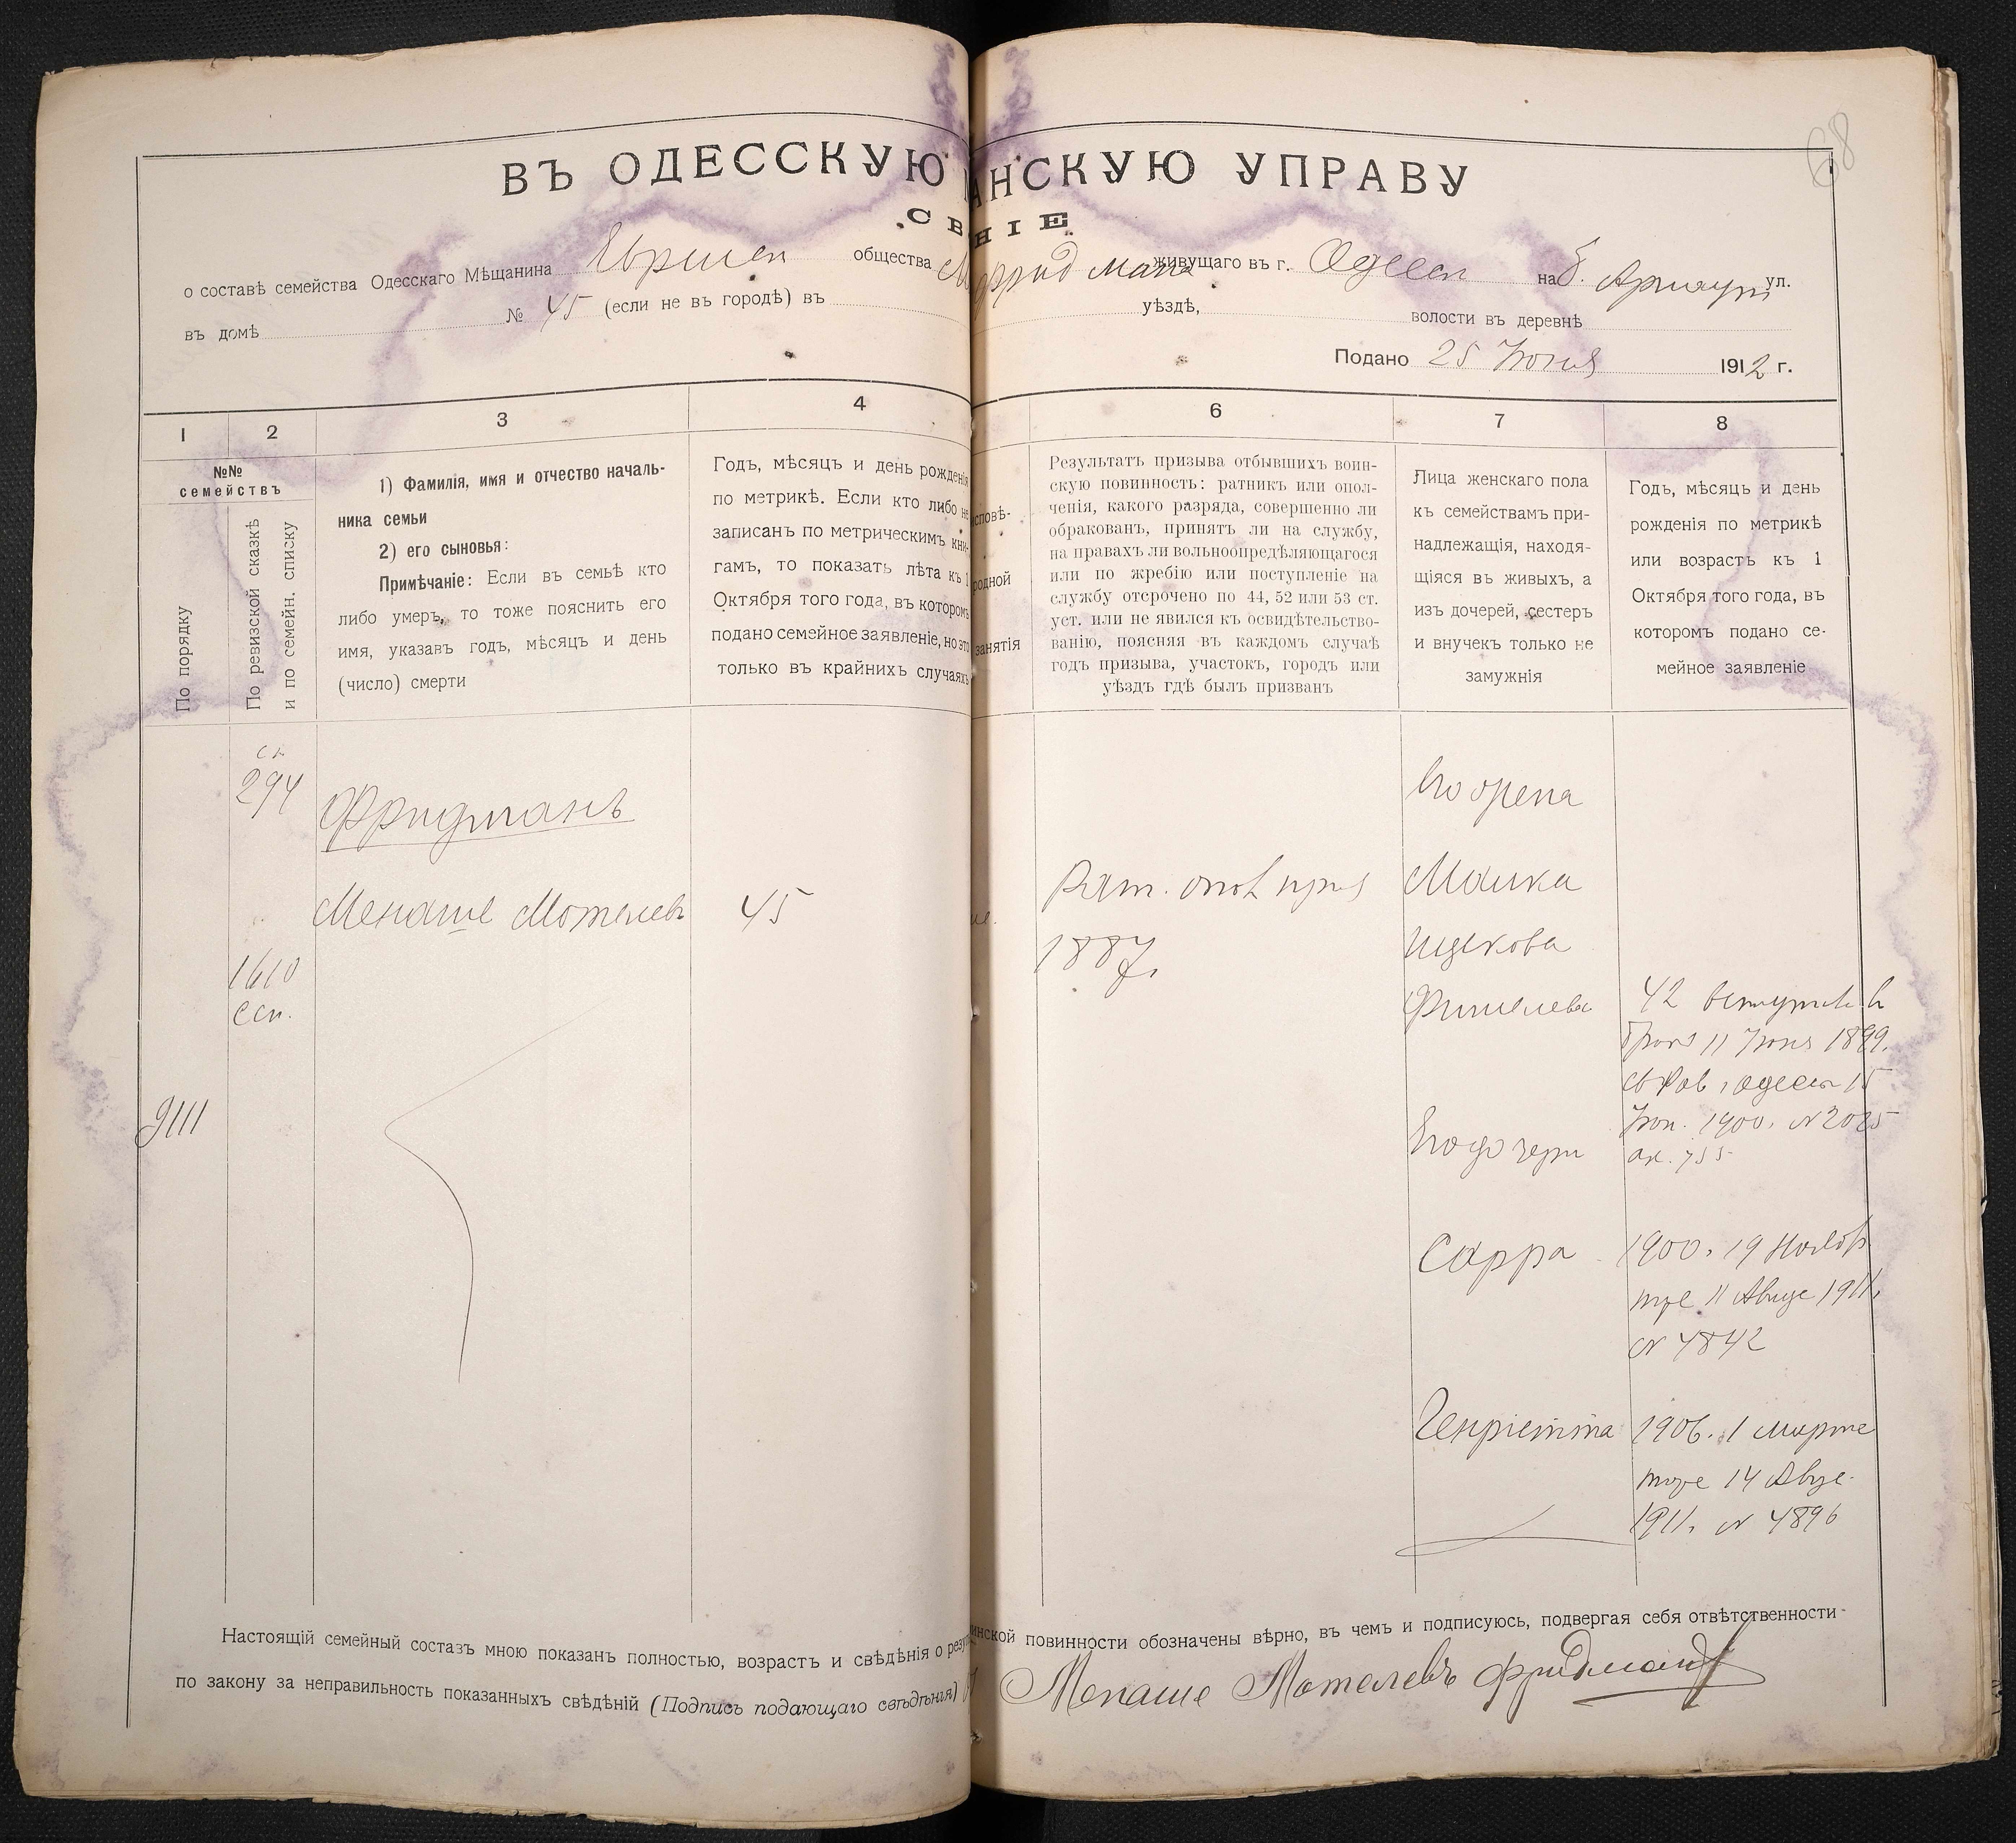 68
ВЪ ОДЕССКУЮ АНСКУЮ УПРАВУ
СВ НІЕ
о составѣ семейства Одесскаго Мѣщанина общества Фридмана живущаго въ г. Одесса на Б. Арнаут ул.
въ домѣ № 45 (если не въ городѣ) въ уѣздѣ, волости въ деревнѣ
Подано 25 Июня 1912 г.
1
2
3
4
6
7
8
№№
семействъ
По порядку
По ревизской сказкѣ
и по семейн. списку
1) Фамилія, имя и отчество началь-
ника семьи
2) его сыновья:
Примѣчаніе: Если въ семьѣ кто
либо умеръ, то тоже пояснить его
имя, указавъ годъ, мѣсяцъ и день
(число) смерти
Годъ, мѣсяцъ и день рожденія
по метрикѣ. Если кто либо не
записанъ по метрическимъ кни-
гамъ, то показать лѣта къ 1
Октября того года, въ которомъ
подано семейное заявленіе, но это
только въ крайнихъ случаяхъ
сповѣ-
родной
занятія
Результатъ призыва отбывшихъ воин-
скую повинность: ратникъ или опол-
ченія, какого разряда, совершенно ли
обракованъ, принятъ ли на службу,
на правахъ ли вольноопредѣляющагося
или по жребію или поступленіе на
службу отсрочено по 44, 52 или 53 ст.
уст. или не явился къ освидѣтельство-
ванію, поясняя въ каждомъ случаѣ
годъ призыва, участокъ, городъ или
уѣздъ гдѣ былъ призванъ
Лица женскаго пола
къ семействамъ при-
надлежащія, находя-
щіяся въ живыхъ, а
изъ дочерей, сестеръ
и внучекъ только не
замужнія
Годъ, мѣсяцъ и день
рожденія по метрикѣ
или возрастъ къ 1
Октября того года, въ
которомъ подано се-
мейное заявленіе
294
Фридманъ
Менаше Мотелевъ
45
1610
9111
Рат. опол
1887
Его жена
Малка
Ицкова
Фишелева
42 вступил в
брак 11 Июня 1899.
Одесса 15
Июн. 1900. № 2025
755
Его дочери
Сарра
1900. 19 Нояб
11 Авгус 1911.
№ 4842
Генріетта
1906. 1 Марта
14 Авгус
1911. № 4896
Настоящій семейный составъ мною показанъ полностью, возрастъ и свѣдѣнія о резу инской повинности обозначены вѣрно, въ чемъ и подписуюсь, подвергая себя отвѣтственности
по закону за неправильность показанныхъ свѣдѣній (Подпись подающаго свѣдѣнія) Менаше Мотелевъ Фридманъ